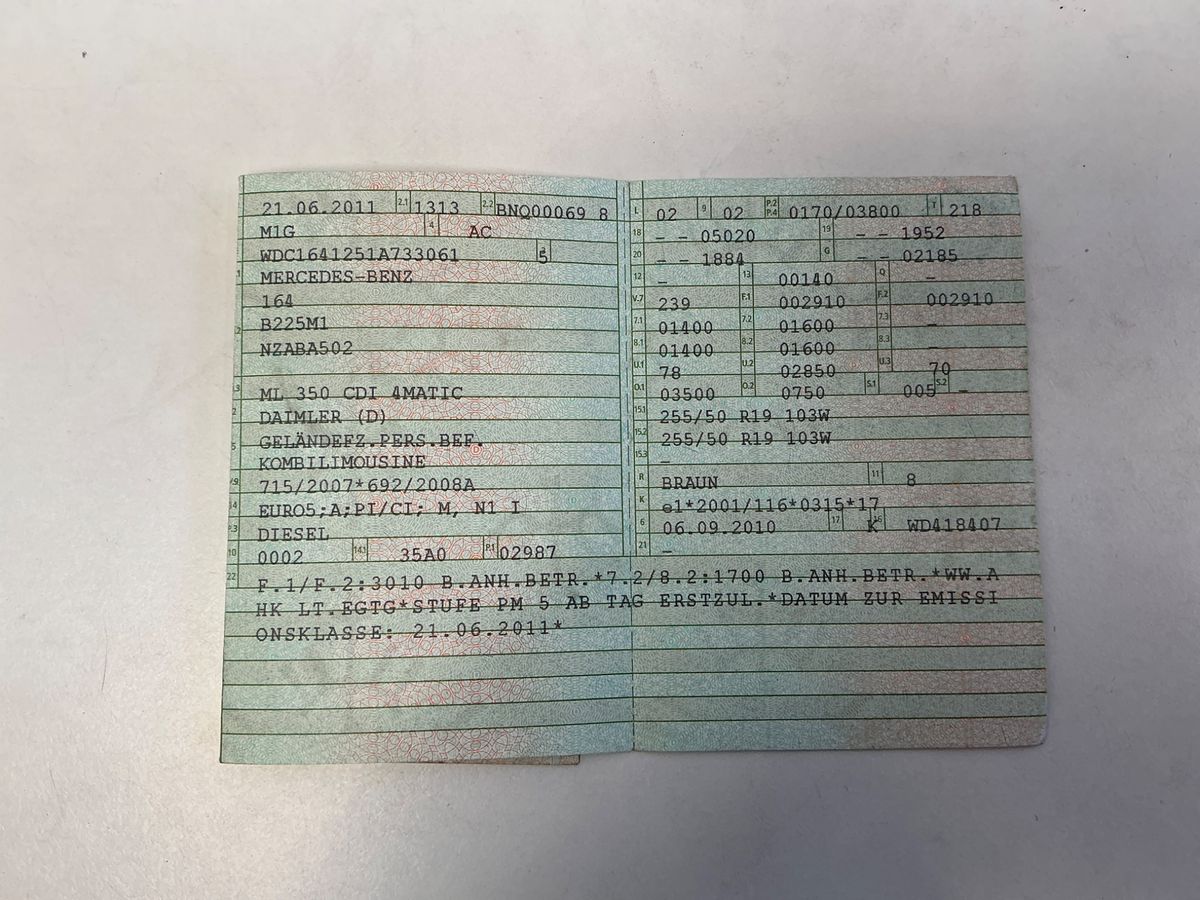 21.06.2011 2.1 1313 2.2 BNQ00069 8
M1G 4 AC
WDC1641251A733061 5
MERCEDES-BENZ
164
B225M1
NZABA502
ML 350 CDI 4MATIC
DAIMLER (D)
GELÄNDEFZ.PERS.BEF.
KOMBILIMOUSINE
715/2007*692/2008A
EURO5;A;PI/CI; M, N1 I
DIESEL
10 0002 14.1 35A0 P.1 02987
L 02 9 02 P.2 P.4 0170/03800 T 218
18 – – 05020 19 – – 1952
20 – – 1884 G – – 02185
12 – 13 00140 Q –
V.7 239 F.1 002910 F.2 002910
7.1 01400 7.2 01600 7.3 –
8.1 01400 8.2 01600 8.3 –
U.1 78 U.2 02850 U.3 70
O.1 03500 O.2 0750 S.1 005 S.2 –
15.1 255/50 R19 103W
15.2 255/50 R19 103W
15.3 –
R BRAUN 11 8
K e1*2001/116*0315*17
6 06.09.2010 17 K 16 WD418407
21 –
22 F.1/F.2:3010 B.ANH.BETR.*7.2/8.2:1700 B.ANH.BETR.*WW.A
HK LT.EGTG*STUFE PM 5 AB TAG ERSTZUL.*DATUM ZUR EMISSI
ONSKLASSE: 21.06.2011*